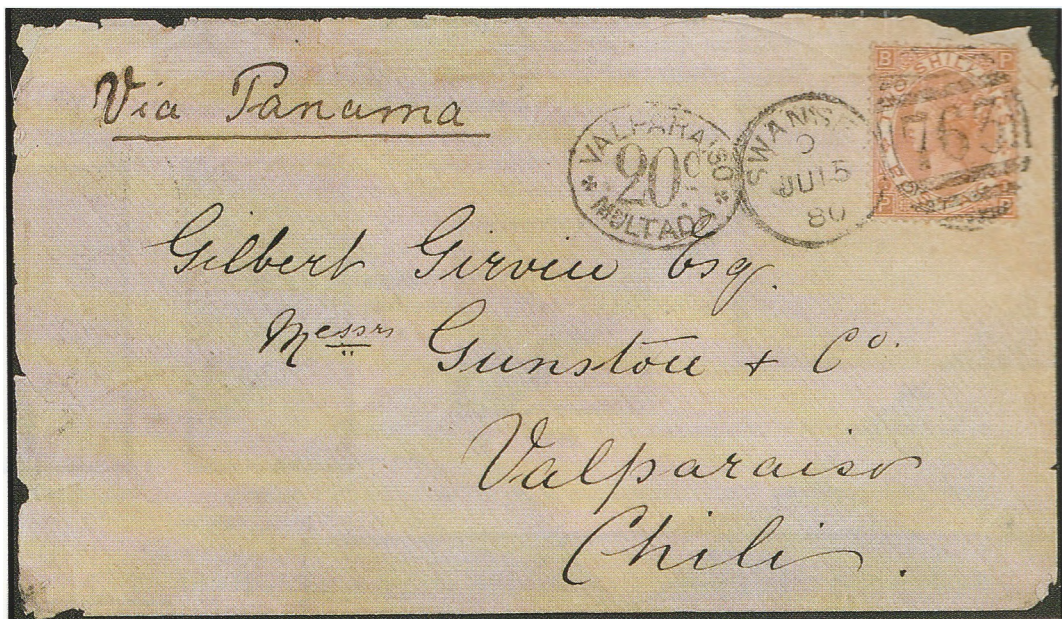 Via Panama
VALPARAISO
20c
MULTADA
SWANSEA
JU 15
80
B P
SHILL
763
Gilbert Girvin Esq.
Messrs Gunston + Co.
Valparaiso
Chili.